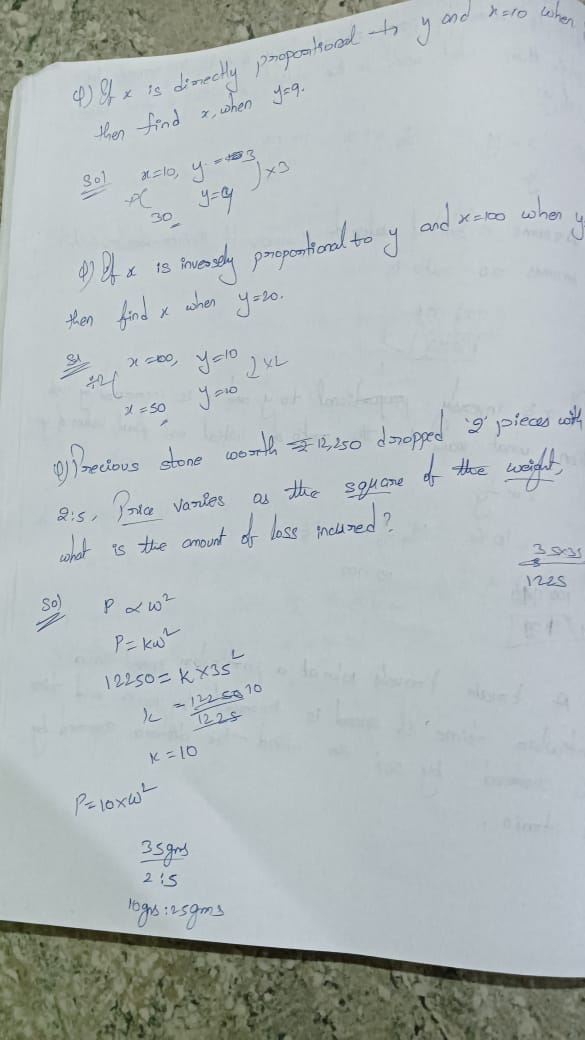 Q) If x is directly proportional to y and x=10 when
then find x, when y=9.
Sol x=10, y=3
x 30 y=9 ) x3
Q) If x is inversely proportional to y and x=100 when y
then find x when y=20.
Sol x=100, y=10
÷2 ( x=50 y=20 ) x2
Q) Precious stone worth 12,250 dropped 2 pieces with
2:5, Price varies as the square of the weight,
what is the amount of loss incured?
35x35
1225
Sol P ∝ w²
P = kw²
12250 = k x 35²
k = 12250 10
1225
k = 10
P = 10xw²
35gms
2:5
10gms : 25gms